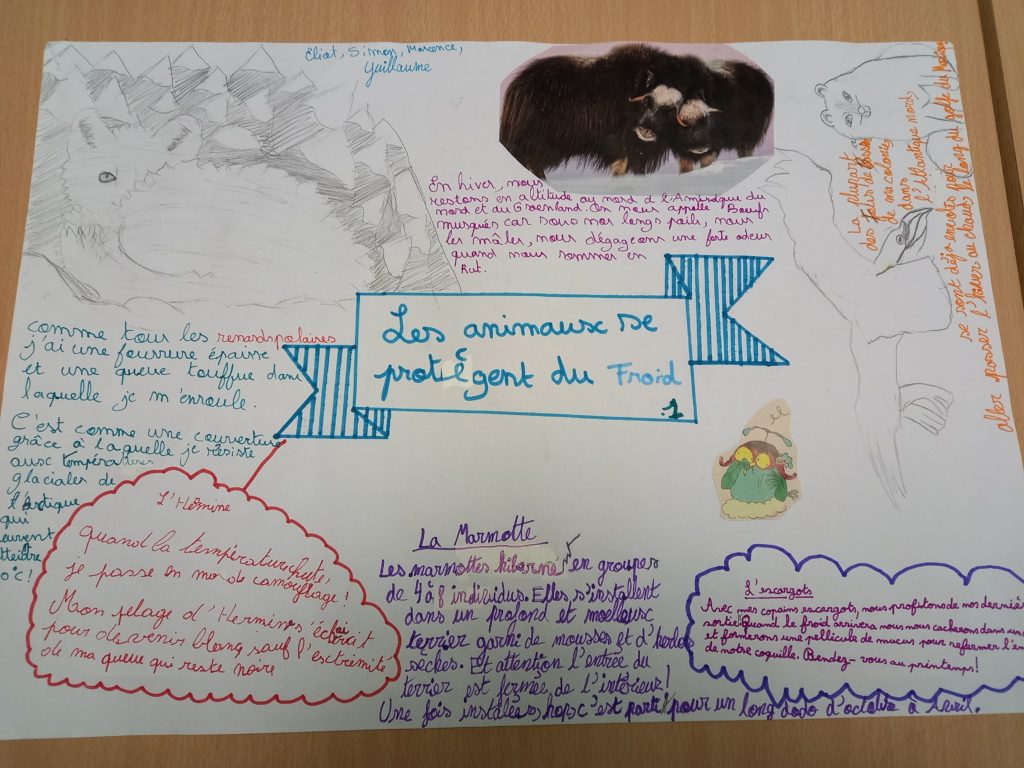 Eliot, Simon, Maxence,
Guillaume
En hiver, nous
restons en altitude au nord d l'Amérdque du
nord et au Groenland. On nous appelle "Boeufs
musqués car sous nos longs poils, nous
les mâles, nous dégageons une forte odeur
quand nous sommes en
Rut.
La plupart
des fous de bassan
de ma colonie
dans
l'Atlantique nord
se sont déjà envolés pour
aller passer l'hiver au chaud le long du golfe du
Les animaux se
protègent du Froid
.1
comme tous les renards polaires
j'ai une fourrure épaisse
et une queue touffue dans
laquelle je m'enroule.
C'est comme une couverture
grâce à laquelle je résiste
aux températures
glaciales de
l'Arctique
qui
euvent
tteidre
0°C!
L'Hermine
Quand la température chute,
je passe en mode camouflage!
Mon pelage d'Hermines éclaircit
pour devenir blanc sauf l'extrémité
de ma queue qui reste noire
La Marmotte
Les marmottes hiberne en groupes
de 4 à 8 individus. Elles s'installent
dans un profond et moelleux
terrier garni de mousses et d'herbes
seches. Et attention l'entrée du
terrier est fermée de l'intérieur!
Une fois installées, hop c'est parti pour un long dodo d'octobre à Avril.
L'escargots
Avec mes copains escargots, nous profitons de nos derniè
sortie. Quand le froid arrivera nous nous cacherons dans un
et formerons une pellicule de mucus pour refermer l'en
de notre coquille. Rendez-vous au printemps!